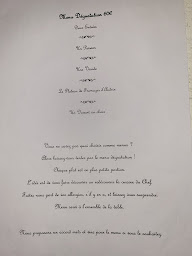 Menu Dégustation 60€
Deux Entrées
Un Poisson
Une Viande
Le Plateau de Fromages d'Antan
Un Dessert au choix
Vous ne savez pas quoi choisir comme menu ?
Alors laissez-vous tenter par le menu dégustation !
Chaque plat est en plus petite portion.
L'idée est de vous faire découvrir ou redécouvrir la cuisine du Chef.
Faites nous part de vos allergies, s'il y en a, et laissez vous surprendre.
Menu servi à l'ensemble de la table.
Nous proposons un accord mets et vins pour le menu si vous le souhaitez.